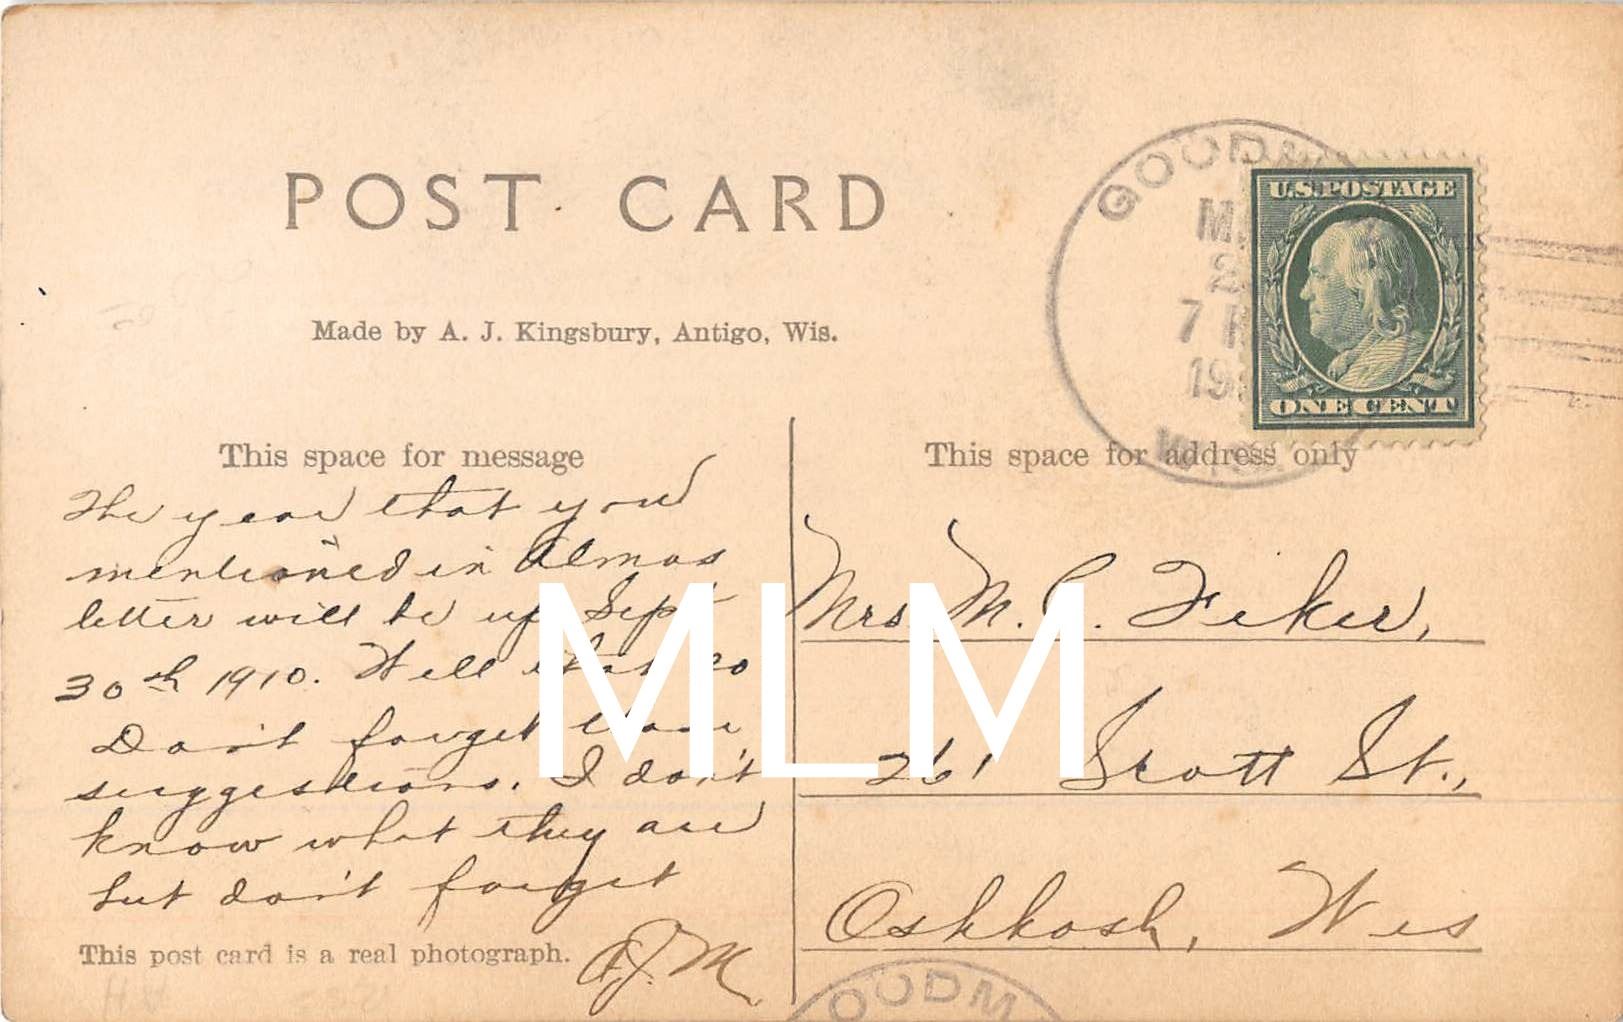 POST CARD
Made by A. J. Kingsbury, Antigo, Wis.
GOODM
M
2
7
19
WIS
U.S. POSTAGE
ONE CENT
This space for message
The year that you
mentioned in Almas
letter will be up Sept
30th 1910. Will that do
Don't forget those
suggestions. I don't
know what they are
but don't forget
A.J.M.
This post card is a real photograph.
This space for address only
Mrs M. C. Feker,
261 Scott St.,
Oshkosh, Wis
OODM
MLM